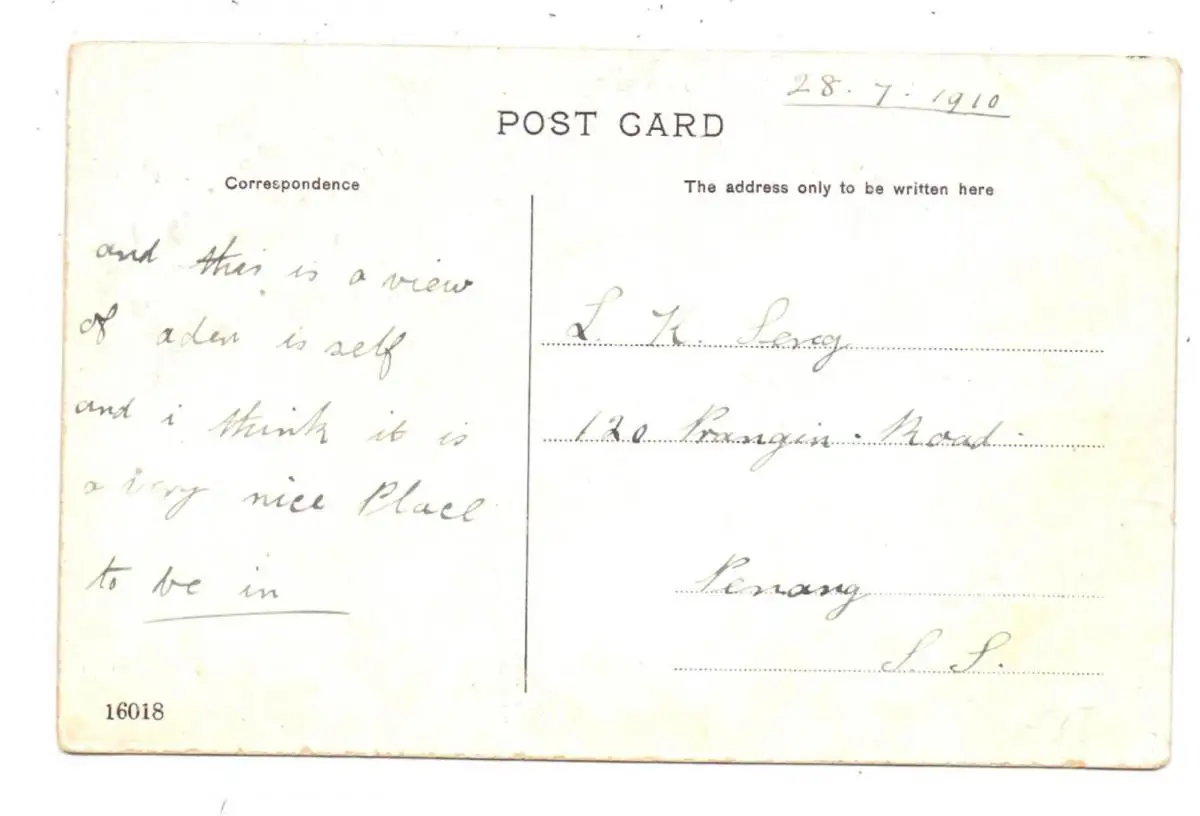 28. 7. 1910
POST CARD
Correspondence
The address only to be written here
and this is a view
of aden is self
and i think it is
a very nice Place
to be in
L. K. Seng
120 Prangin. Road.
Penang
S. S.
16018